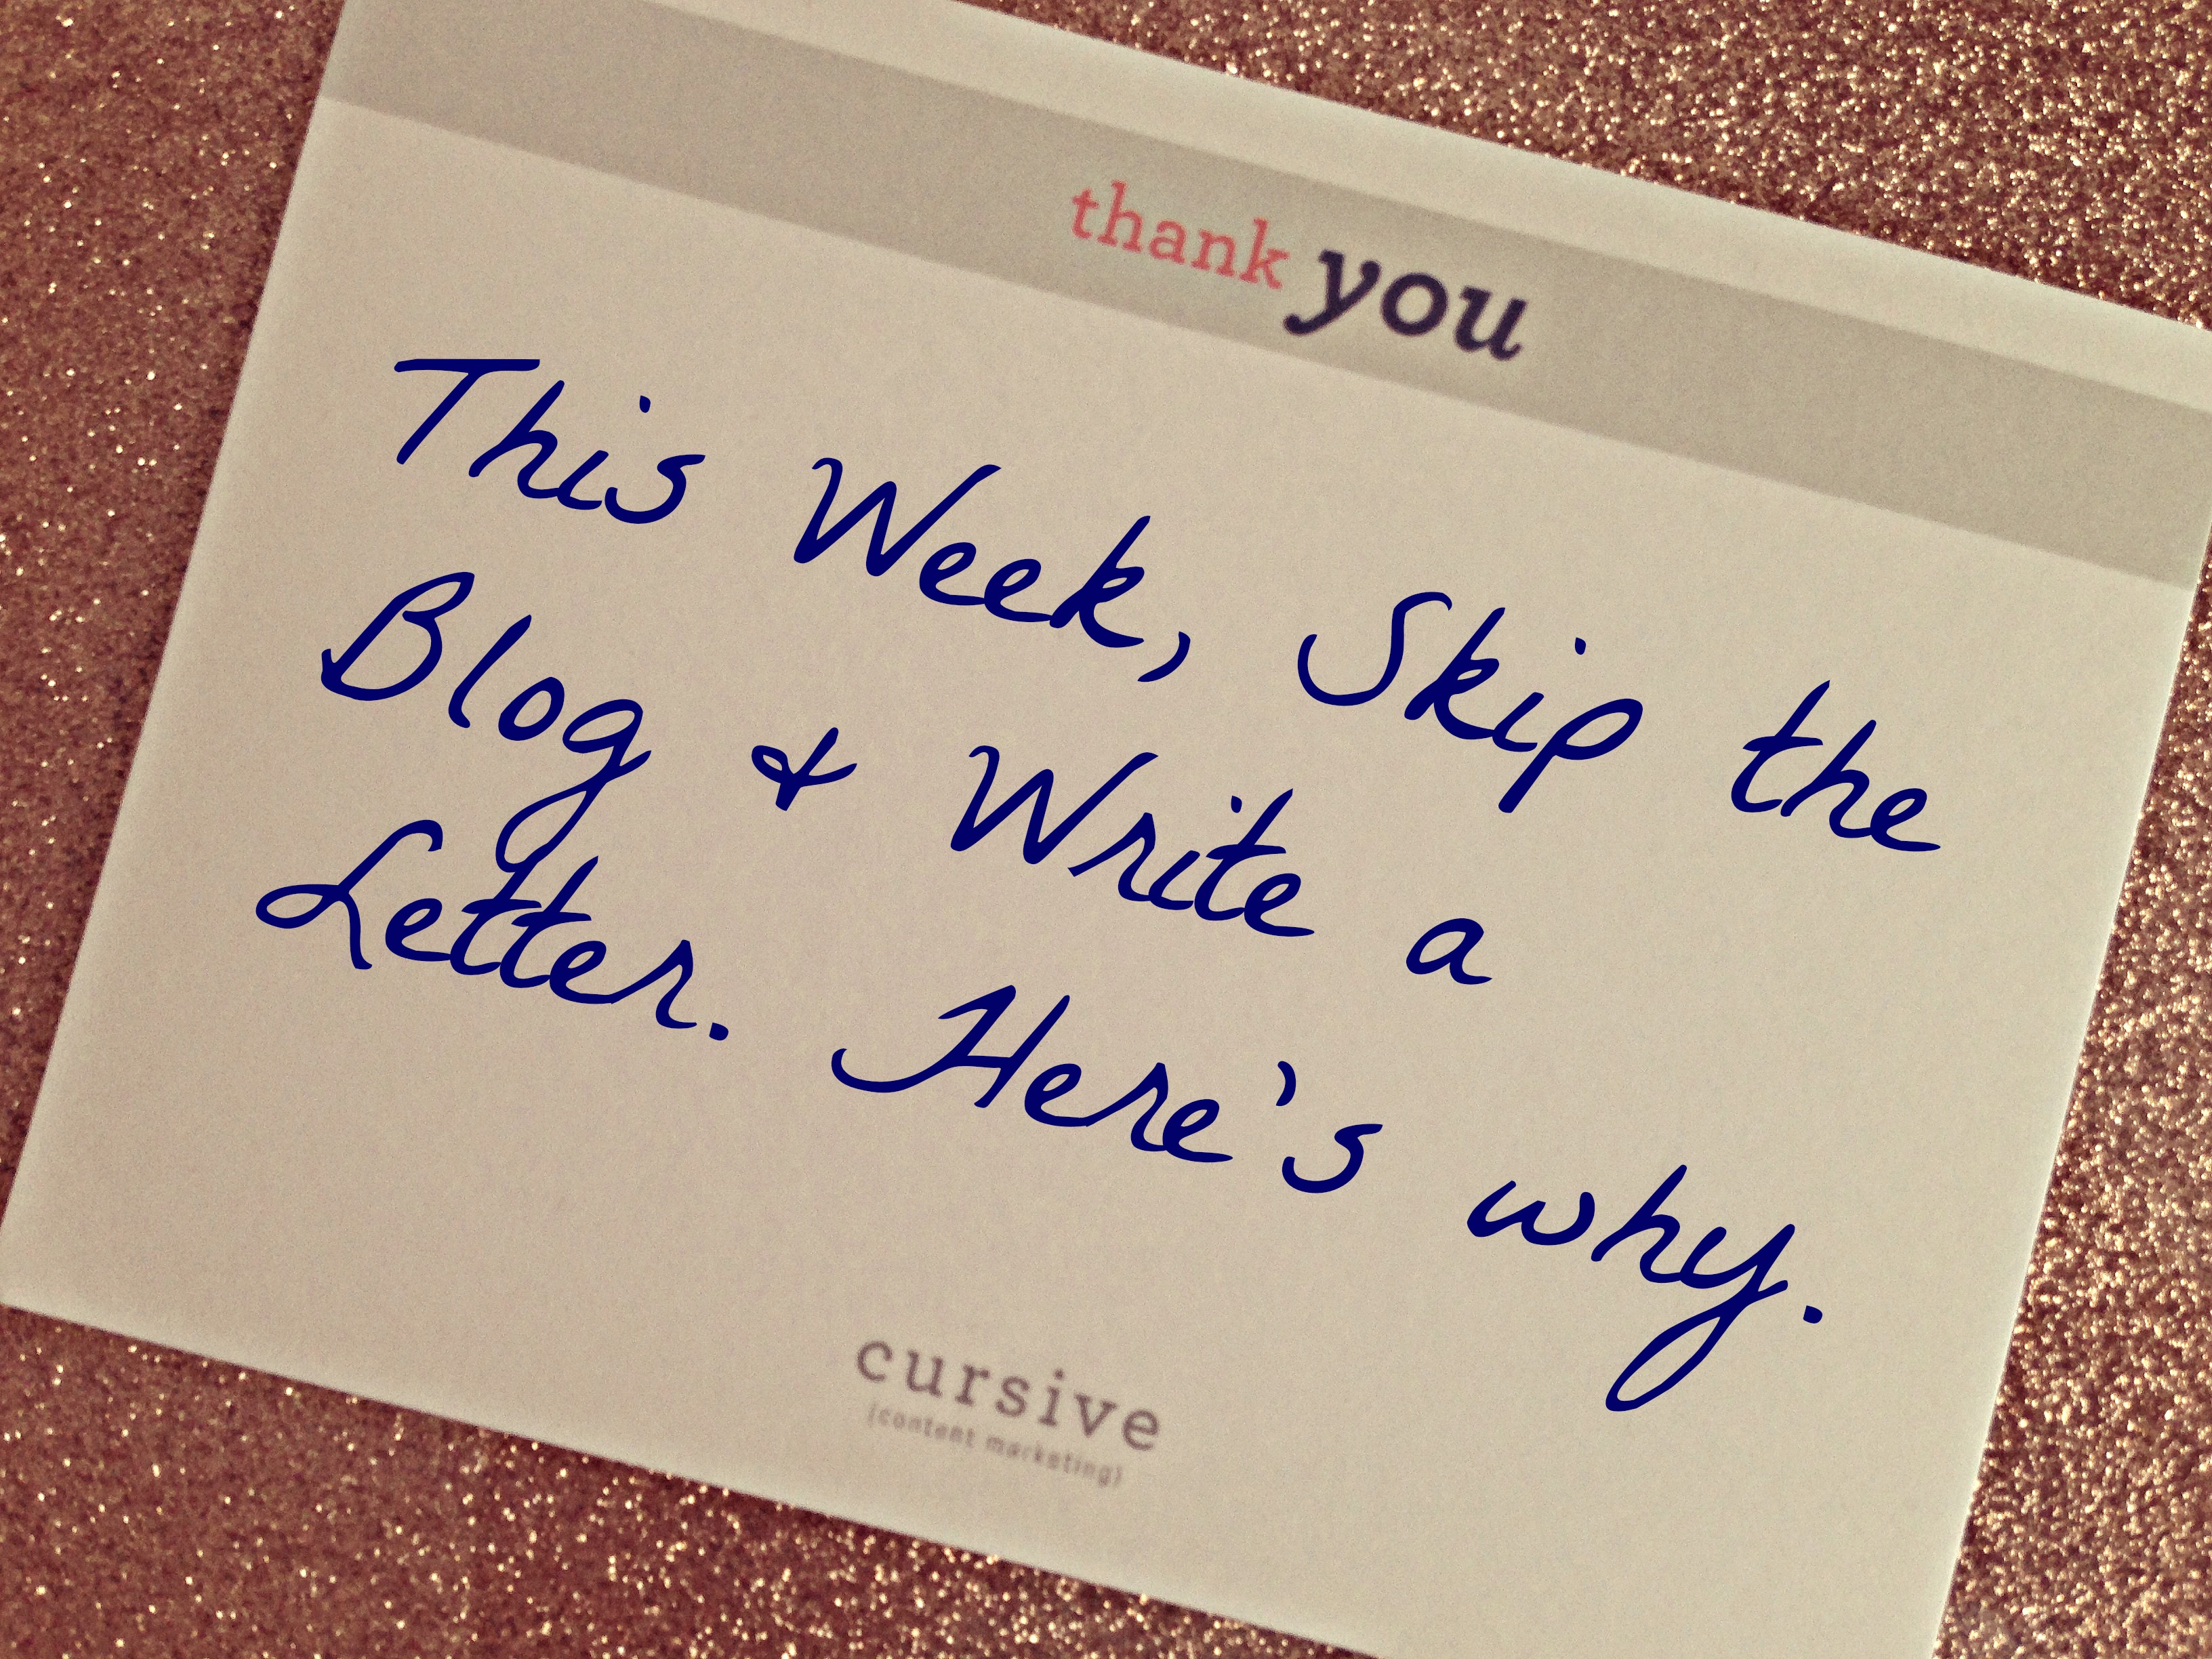 thank you
This Week, Skip the
Blog & Write a
Letter. Here's why.
cursive
(content marketing)